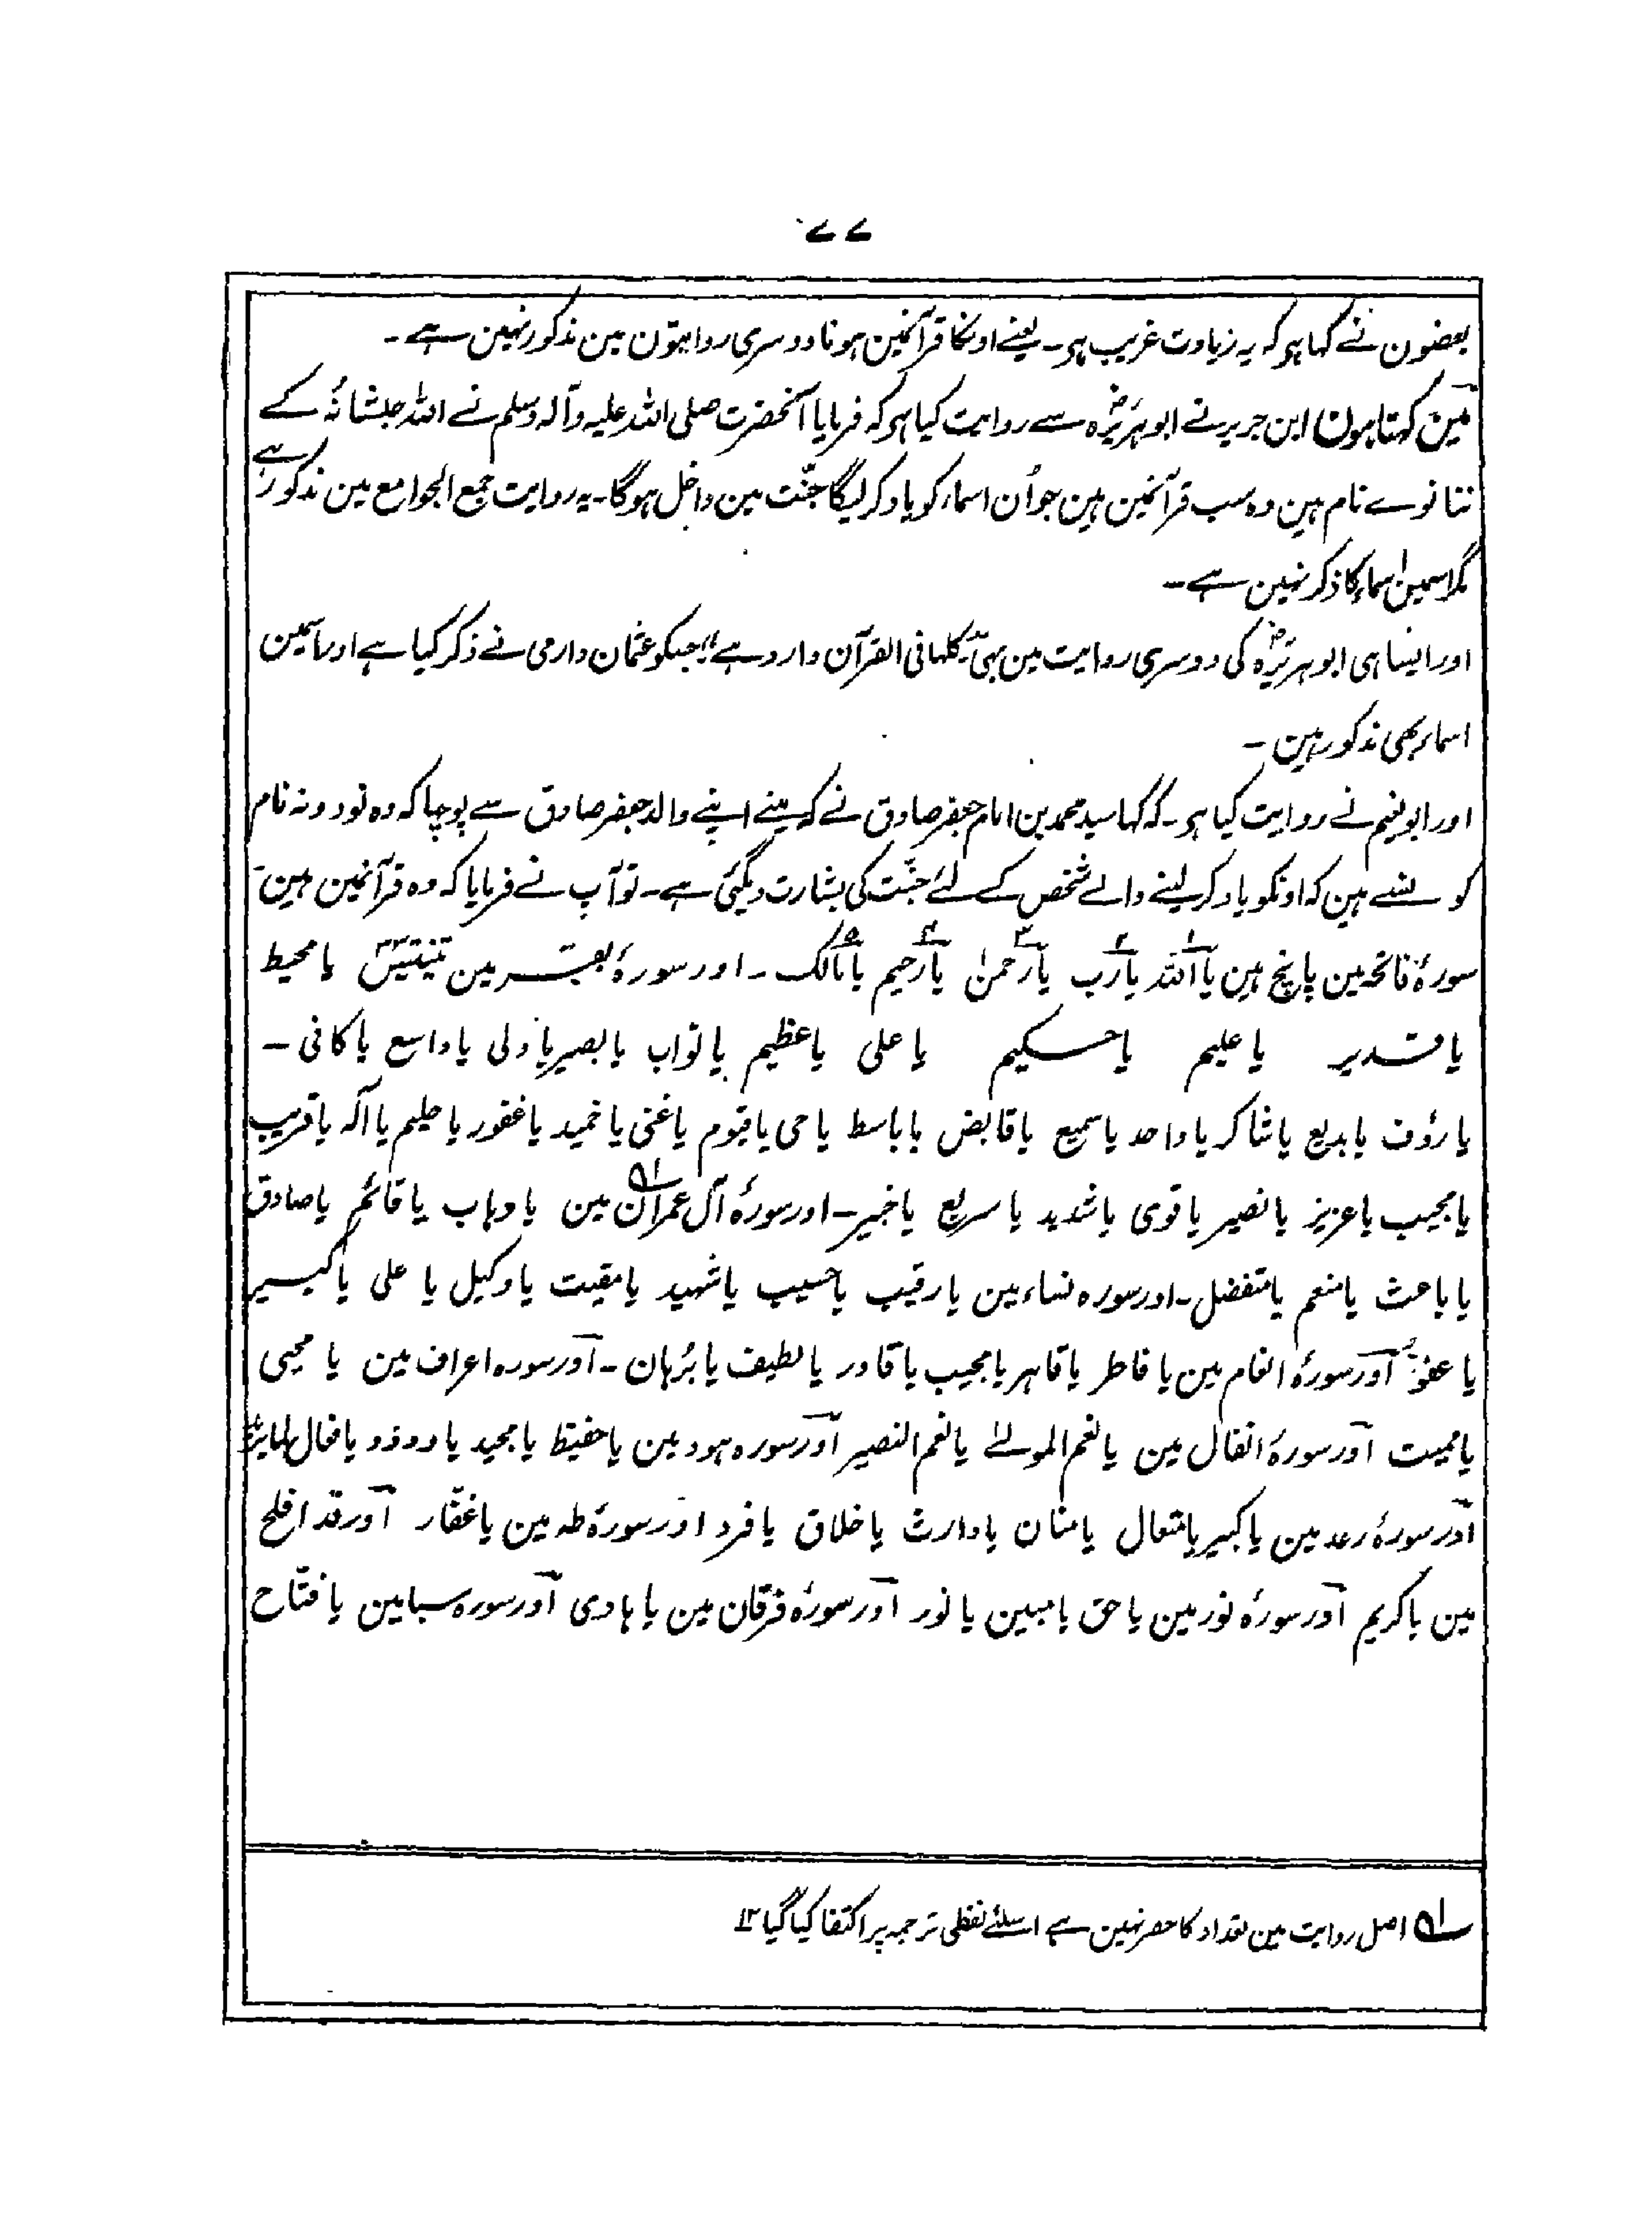 ۷۷
بعضون نے کہا ہو کہ یہ زیادت غریب ہو۔ یعنے اونکا قرآنمین ہونا دوسری روایتون مین مذکور نہین ہے۔
مین کہتا ہون ابن جریر نے ابو ہریرہؓ سے روایت کیا ہو کہ فرمایا آنحضرت صلی اللہ علیہ وآلہ وسلم نے اللہ جلشانہٗ کے
ننانوے نام ہین وہ سب قرآنمین ہین جو اُن اسماء کو یاد کر لیگا جنّت مین داخل ہوگا۔ یہ روایت جمع الجوامع مین مذکور ہے
مگر اسمین اسماء کا ذکر نہین ہے۔
اور ایسا ہی ابو ہریرہؓ کی دوسری روایت مین بہی کلہا فی القرآن وارد ہے جسکو عثمان دارمی نے ذکر کیا ہے اور اسمین
اسماء بھی مذکور ہین۔
اور ابو نعیم نے روایت کیا ہو۔ کہ کہا سید محمد بن امام جعفر صادق نے کہ مینے اپنے والد جعفر صادق سے پوچہا کہ وہ نود و نہ نام
کونسے ہین کہ اونکو یاد کر لینے والے شخص کے لئے جنّت کی بشارت دیگئی ہے۔ تو آپ نے فرمایا کہ وہ قرآنمین ہین
سورۂ فاتحہ مین پانچ ہین یا اللہ ۱ یا رب ۲ یا رحمن ۳ یا رحیم ۴ یا مالک ۵ ۔ اور سورۂ بقرہ مین تینتیس یا محیط
یا قدیر یا علیم یا حکیم یا علی یا عظیم یا تواب یا بصیر یا ولی یا واسع یا کافی ۔
یا رؤف یا بدیع یا شاکر یا واحد یا سمیع یا قابض یا باسط یا حی یا قیوم یا غنی یا حمید یا غفور یا حلیم یا الٰہ یا قریب
یا مجیب یا عزیز یا نصیر یا قوی یا شدید یا سریع یا خبیر۔ اور سورۂ آل عمران ۱؎ مین یا وہاب یا قائم یا صادق
یا باعث یا منعم یا متفضل۔ اور سورہ نساء مین یا رقیب یا حسیب یا شہید یا مقیت یا وکیل یا علی یا کبیر
یا عفوّ اور سورۂ انعام مین یا فاطر یا قاہر یا مجیب یا قادر یا لطیف یا بُرہان ۔ اور سورہ اعراف مین یا محیی
یا ممیت اور سورۂ انفال مین یا نعم المولے یا نعم النصیر اور سورہ ہود مین یا حفیظ یا مجید یا ودود یا فعال لما یرید
اور سورۂ رعد مین یا کبیر یا متعال یا منان یا وارث یا خلاق یا فرد اور سورۂ طہ مین یا غفّار اور قد افلح
مین یا کریم اور سورۂ نور مین یا حق یا مبین یا نور اور سورۂ فرقان مین یا ہادی اور سورہ سبا مین یا فتّاح
۱؎ اصل روایت مین تعداد کا حصر نہین ہے اسلئے لفظی ترجمہ پر اکتفا کیا گیا ۱۲